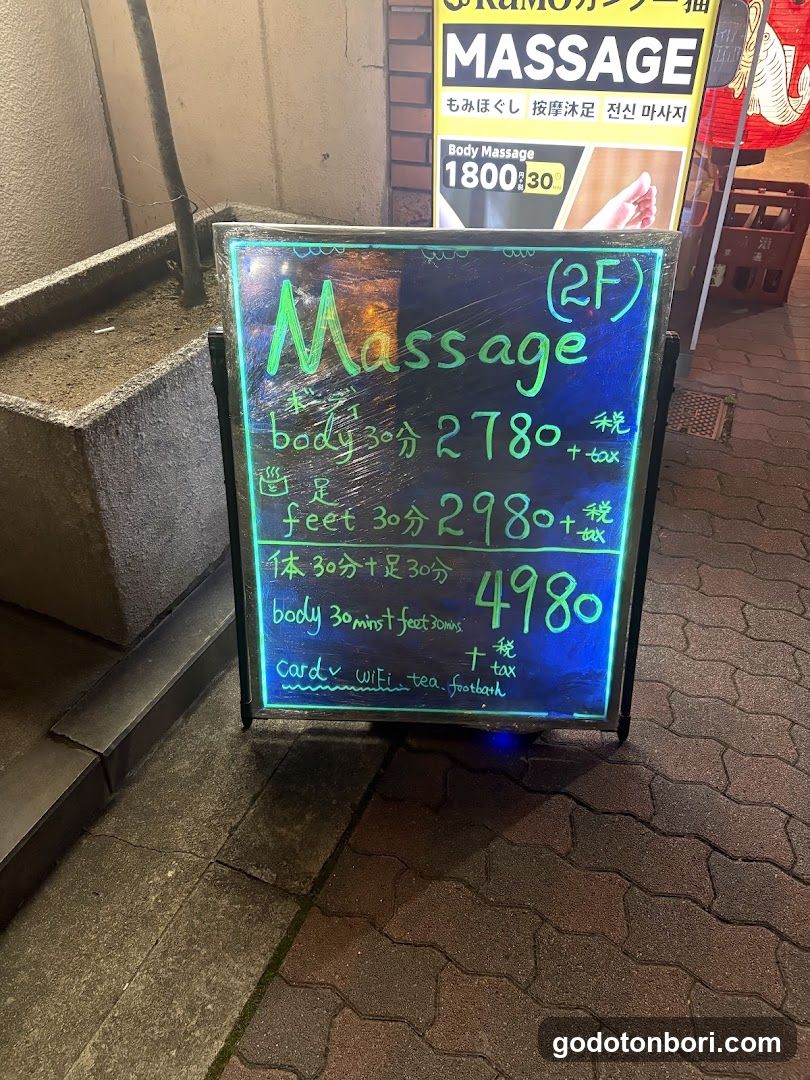 MASSAGE
もみほぐし 按摩沐足 전신 마사지
Body Massage
1800円+税 30
(2F)
Massage
ボディ
body 30分 2780 + 税 tax
足
feet 30分 2980 + 税 tax
体 30分 + 足 30分
body 30mins + feet 30mins 4980
+ 税 tax
card✓ wiFi. tea. footbath
godotonbori.com